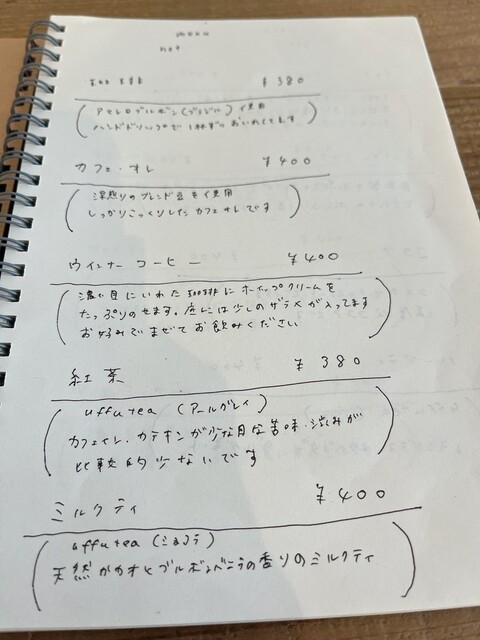 menu
hot
珈琲 ¥380
(アセロブルボン(ブラジル)使用
ハンドドリップで1杯ずつおいれてします)
カフェ・オレ ¥400
(深煎りのブレンド豆を使用
しっかりこっくりしたカフェオレです)
ウインナーコーヒー ¥400
(濃い目にいれた珈琲にホイップクリームを
たっぷりのせます。底には少しのザラメが入ってます
お好みでまぜてお飲みください)
紅茶 ¥380
(uffu tea (アールグレイ)
カフェイン・カテキンが少な目な苦味・渋みが
比較的少ないです)
ミルクティ ¥400
(uffu tea (ショコラ)
天然カカオとブルボンバニラの香りのミルクティ)